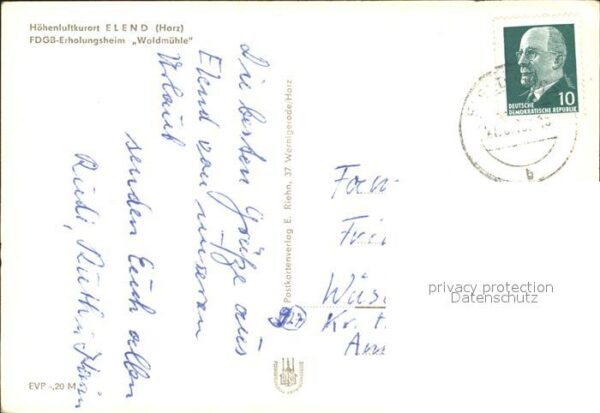 Höhenluftkurort ELEND (Harz)
FDGB-Erholungsheim „Waldmühle"
Die besten Grüße aus
Elend von unserem
Urlaub
senden Euch allen
Rudi, Ruth u.
Postkartenverlag E. Riehn, 37 Wernigerode/Harz
EVP -,20 M
DEUTSCHE
DEMOKRATISCHE REPUBLIK
10
b
Fam
Kr.
privacy protection
Datenschutz